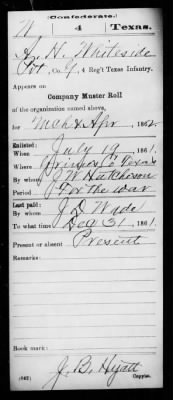 (Confederate.)
W 4 Texas.
A. H. Whiteside
Pvt, Co. G, 4 Reg't Texas Infantry.
Appears on
Company Muster Roll
of the organization named above,
for Mch & Apr, 1862.
Enlisted:
When July 19, 1861.
Where Grimes Co Texas
By whom J W Hutcheson
Period For the war
Last paid:
By whom J D Wade
To what time Dec 31, 1861.
Present or absent Present
Remarks:
Book mark:
J. B. Hyatt
(642) Copyist.